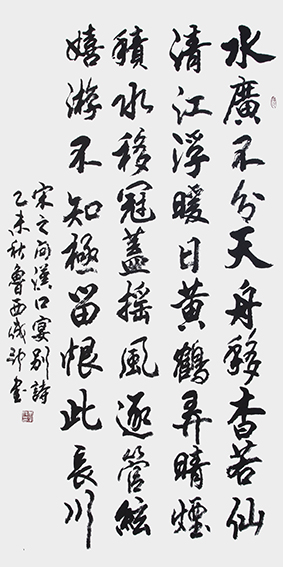 水廣不分天舟移杳若仙
清江浮暖日黃鶴弄晴煙
積水移冠蓋搖風逐管絃
嬉游不知極留恨此長川
宋之问漢口宴别詩
乙未秋魯西書